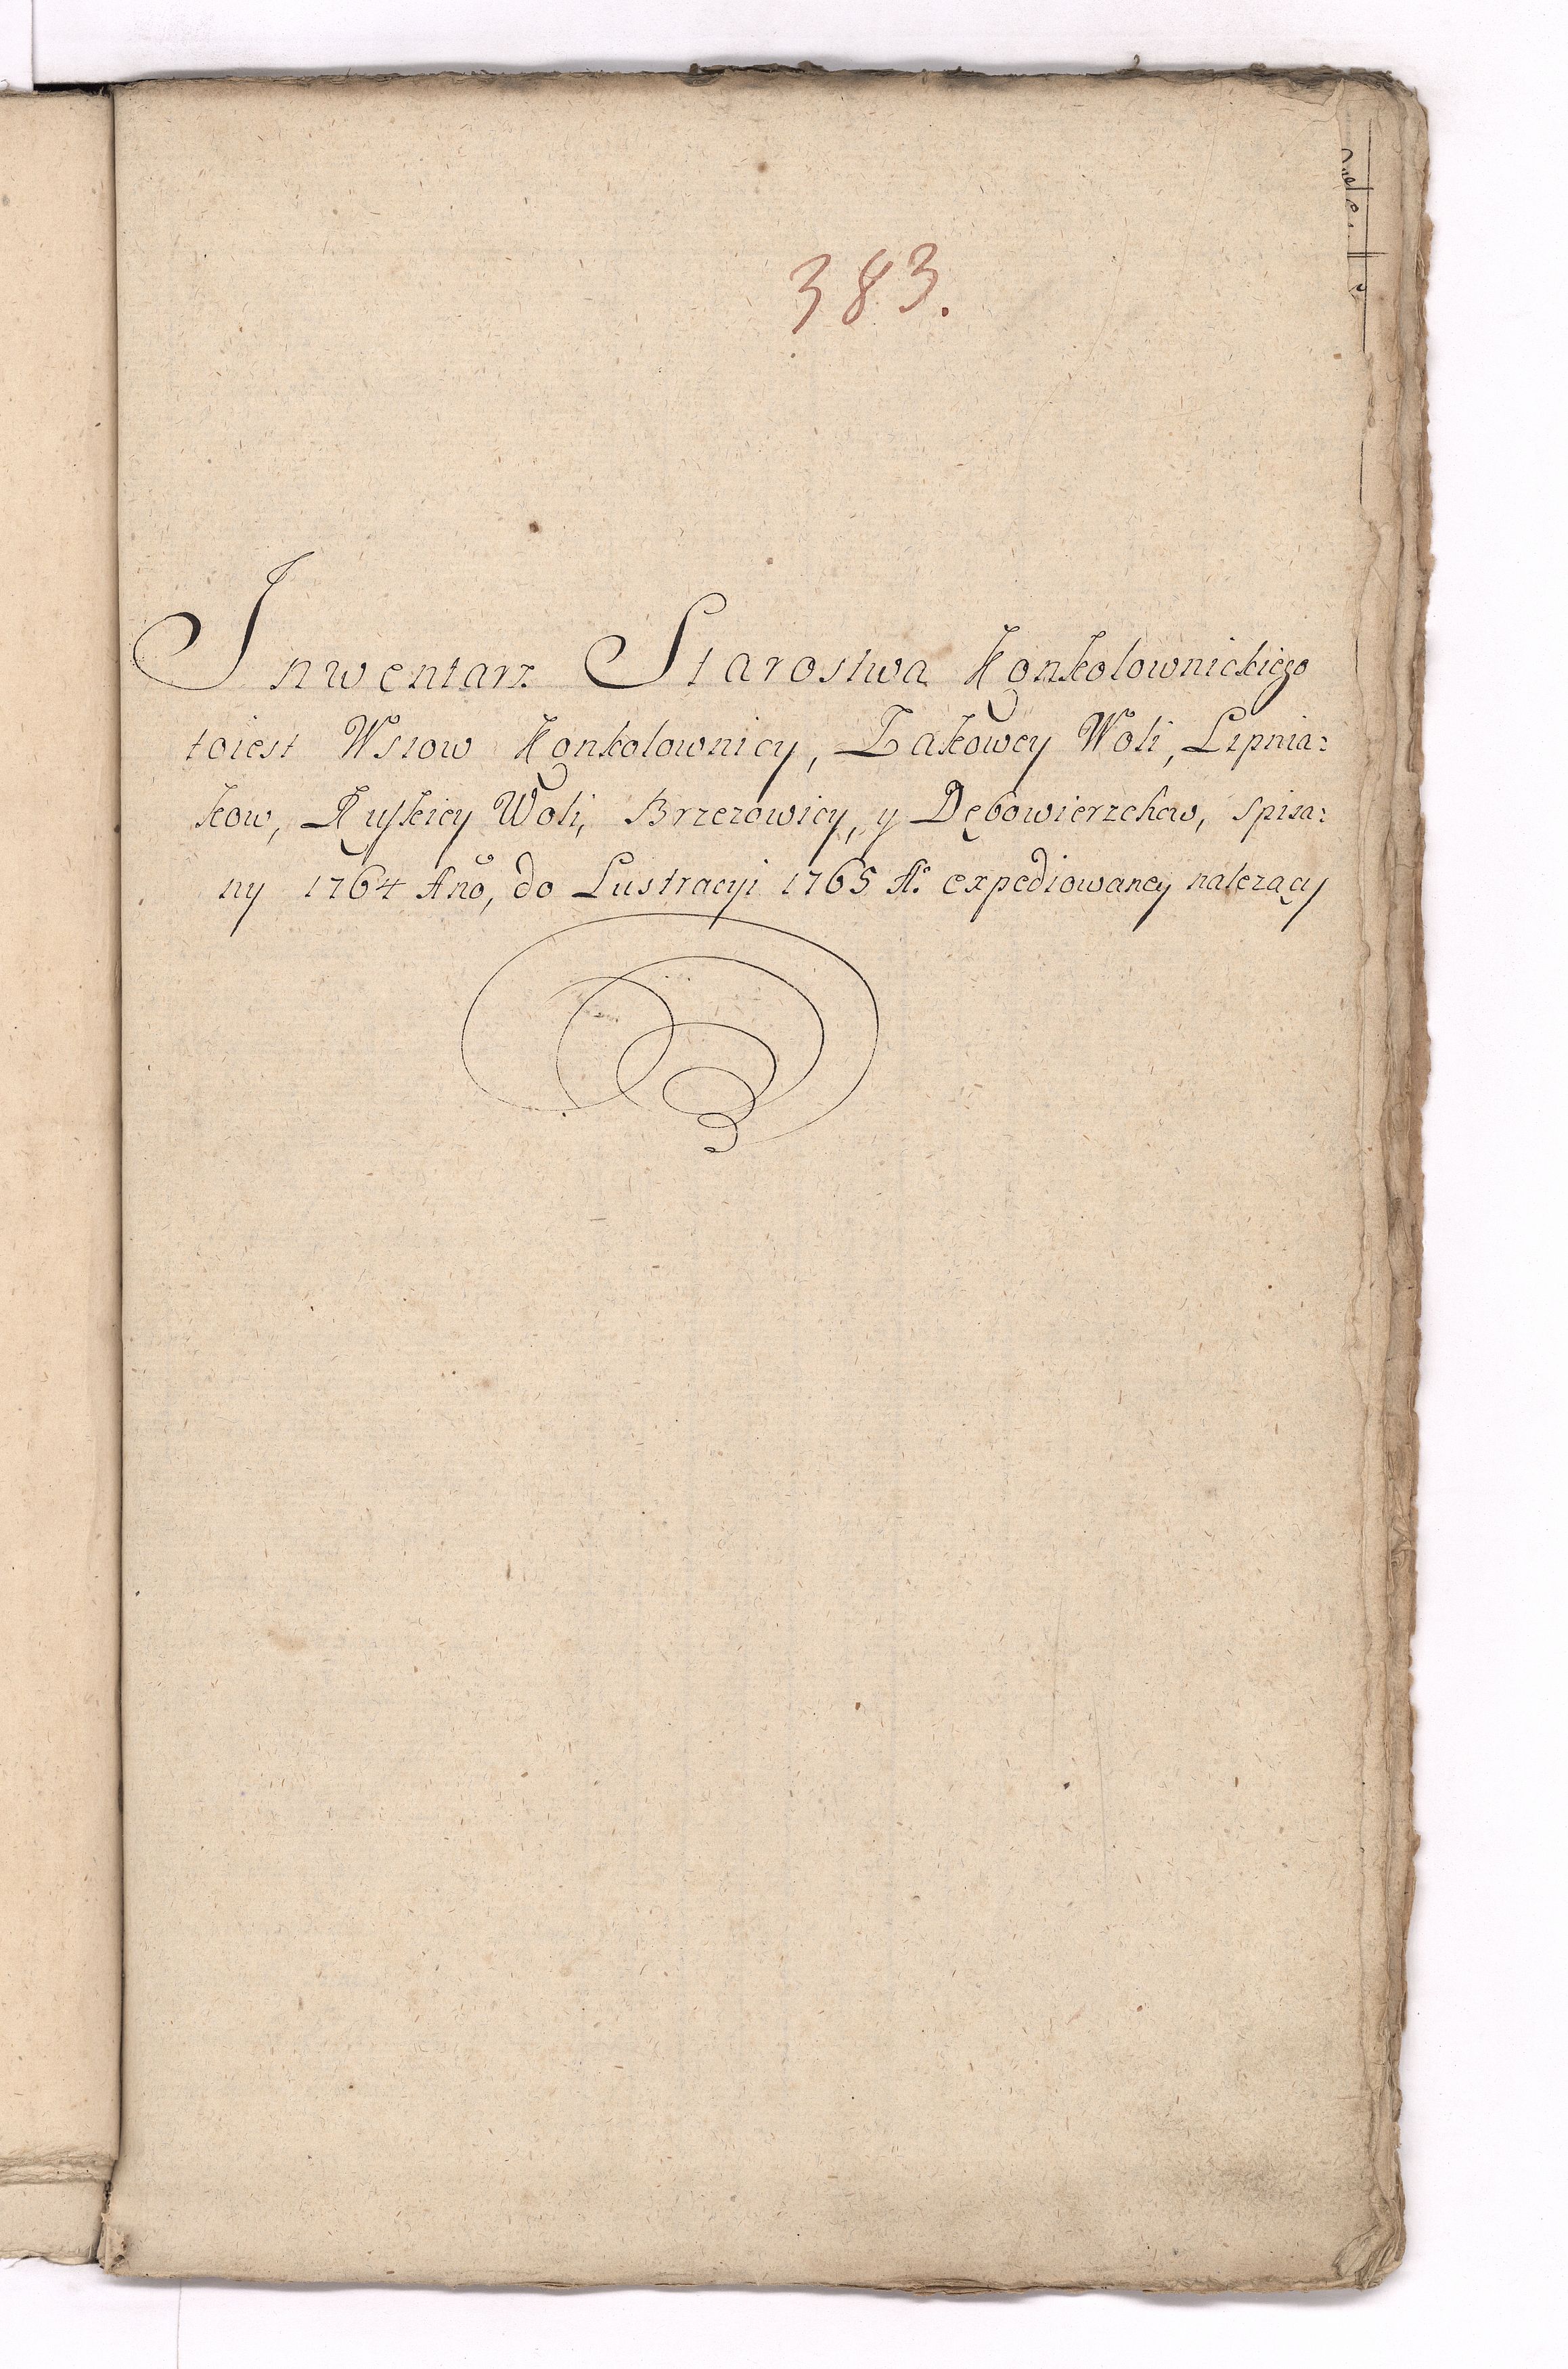 383.
Inwentarz Starostwa Konkolownickiego
toiest Wsiow Konkolownicy, Zakowey Woli, Lipnia:
kow, Ruskiey Woli, Brzezowicy, y Dębowierzchow, spisa:
ny 1764 Ano, do Lustracyi 1765 Ao expediowaney nalezący